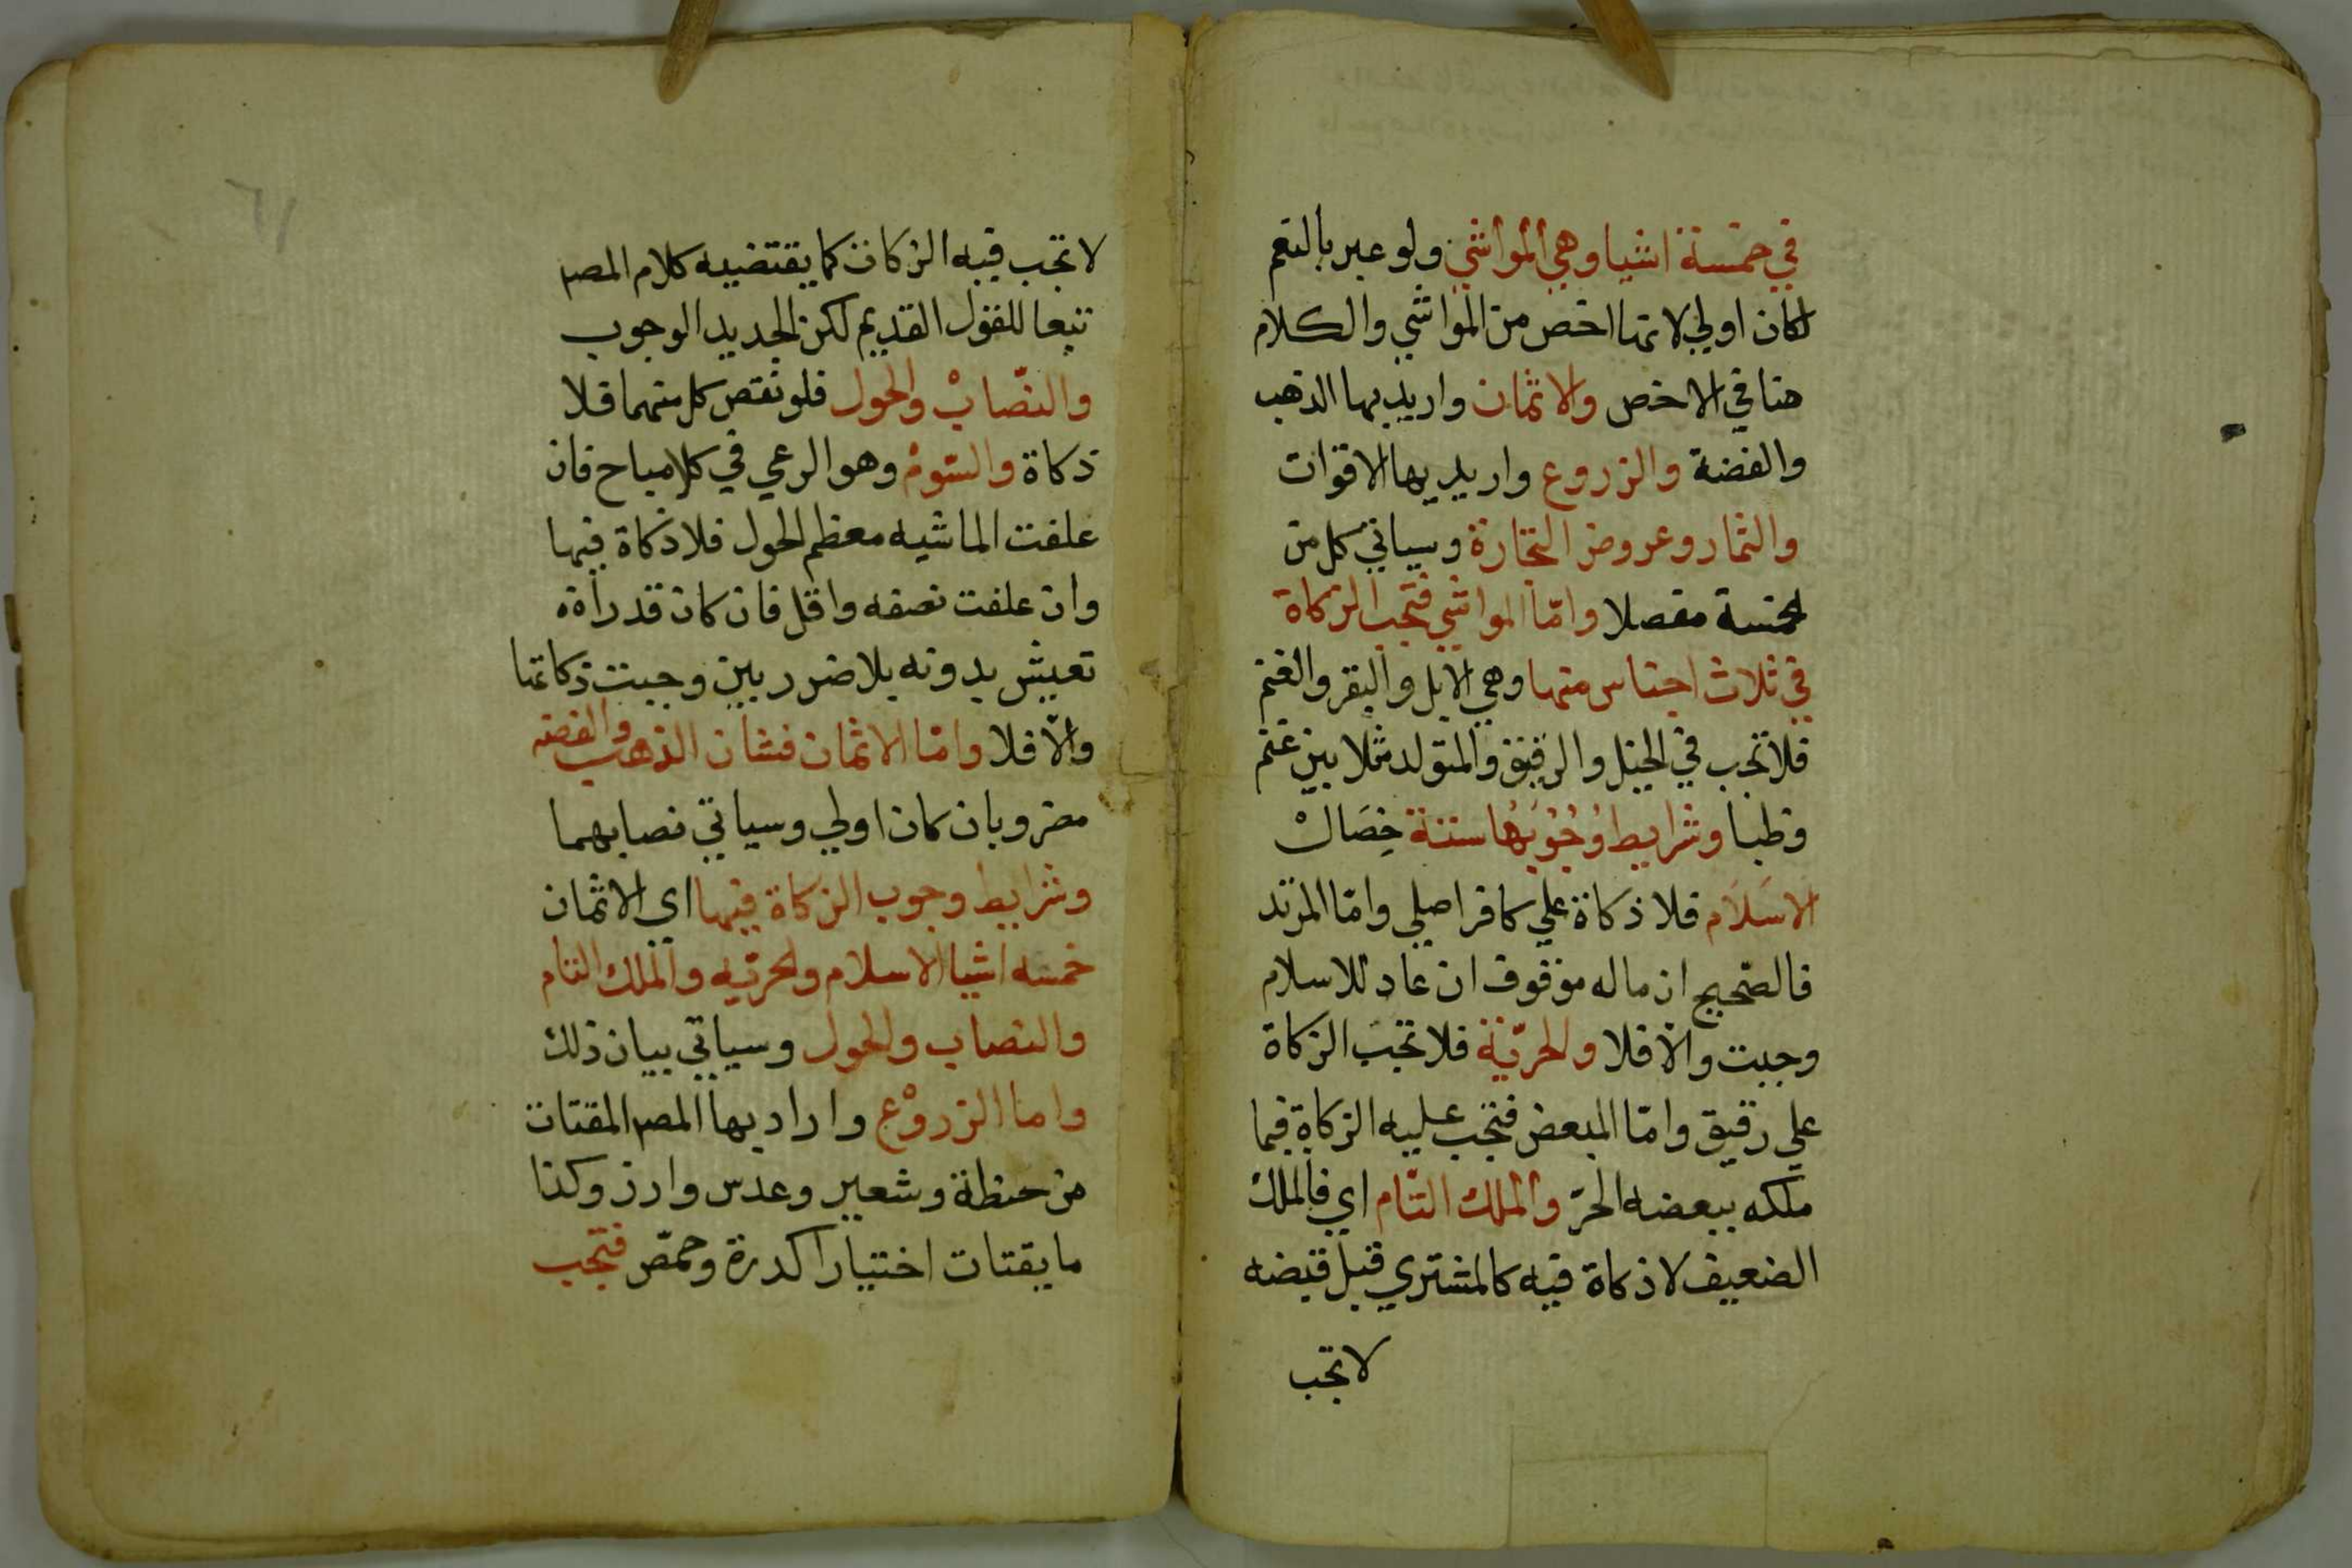 في خمسة اشيا وهي المواشي ولو عبر بالنعم
لكان اولي لانها اخص من المواشي والكلام
هنا في الاخص والاثمان واريد بها الذهب
والفضة والزروع واريد بها الاقوات
والثمار وعروض التجارة وسياتي كل من
الخمسة مفصلا واما المواشي فتجب الزكاة
في ثلاث اجناس منها وهي الابل والبقر والغنم
فلا تجب في الخيل والرقيق والمتولد مثلا بين غنم
وظبا وشرايط وُجُوبُها ستة خِصَال
الاسَلَام فلا زكاة علي كافر اصلي وامّا المرتد
فالصّحيح ان ماله موقوف ان عاد للاسلام
وجبت والّا فلا والحرّيّة فلا تجب الزكاة
علي رقيق وامّا المبعض فتجب عليه الزكاة فيما
ملكه ببعضه الحرّ والملك التّام اي فالملك
الضعيف لا زكاة فيه كالمشتري قبل قبضه
لا تجب
٦١
لا تجب فيه الزكاة كما يقتضيه كلام المصـ
تبعا للقول القديم لكن الجديد الوجوب
والنّصابْ والحول فلو نقص كل منهما فلا
زكاة والسّومْ وهو الرعي في كلا مباح فان
علفت الماشيه معظم الحول فلا زكاة فيها
وان علفت نصفه واقل فان كان قدرا
تعيش بدونه بلا ضرر بين وجبت زكاتها
والّا فلا وامّا الاثمان فشان الذهب والفضه
مضروبان كان اولي وسياتي نصابهما
وشرايط وجوب الزكاة فيها اي الاثمان
خمسه اشيا الاسلام والحرّيّه والملك التام
والنصاب والحول وسياتي بيان ذلك
واما الزروْع واراد بها المصـ المقتات
من حنطة وشعير وعدس وارز وكذا
ما يقتات اختيارا كدرة وحمّص فتجب